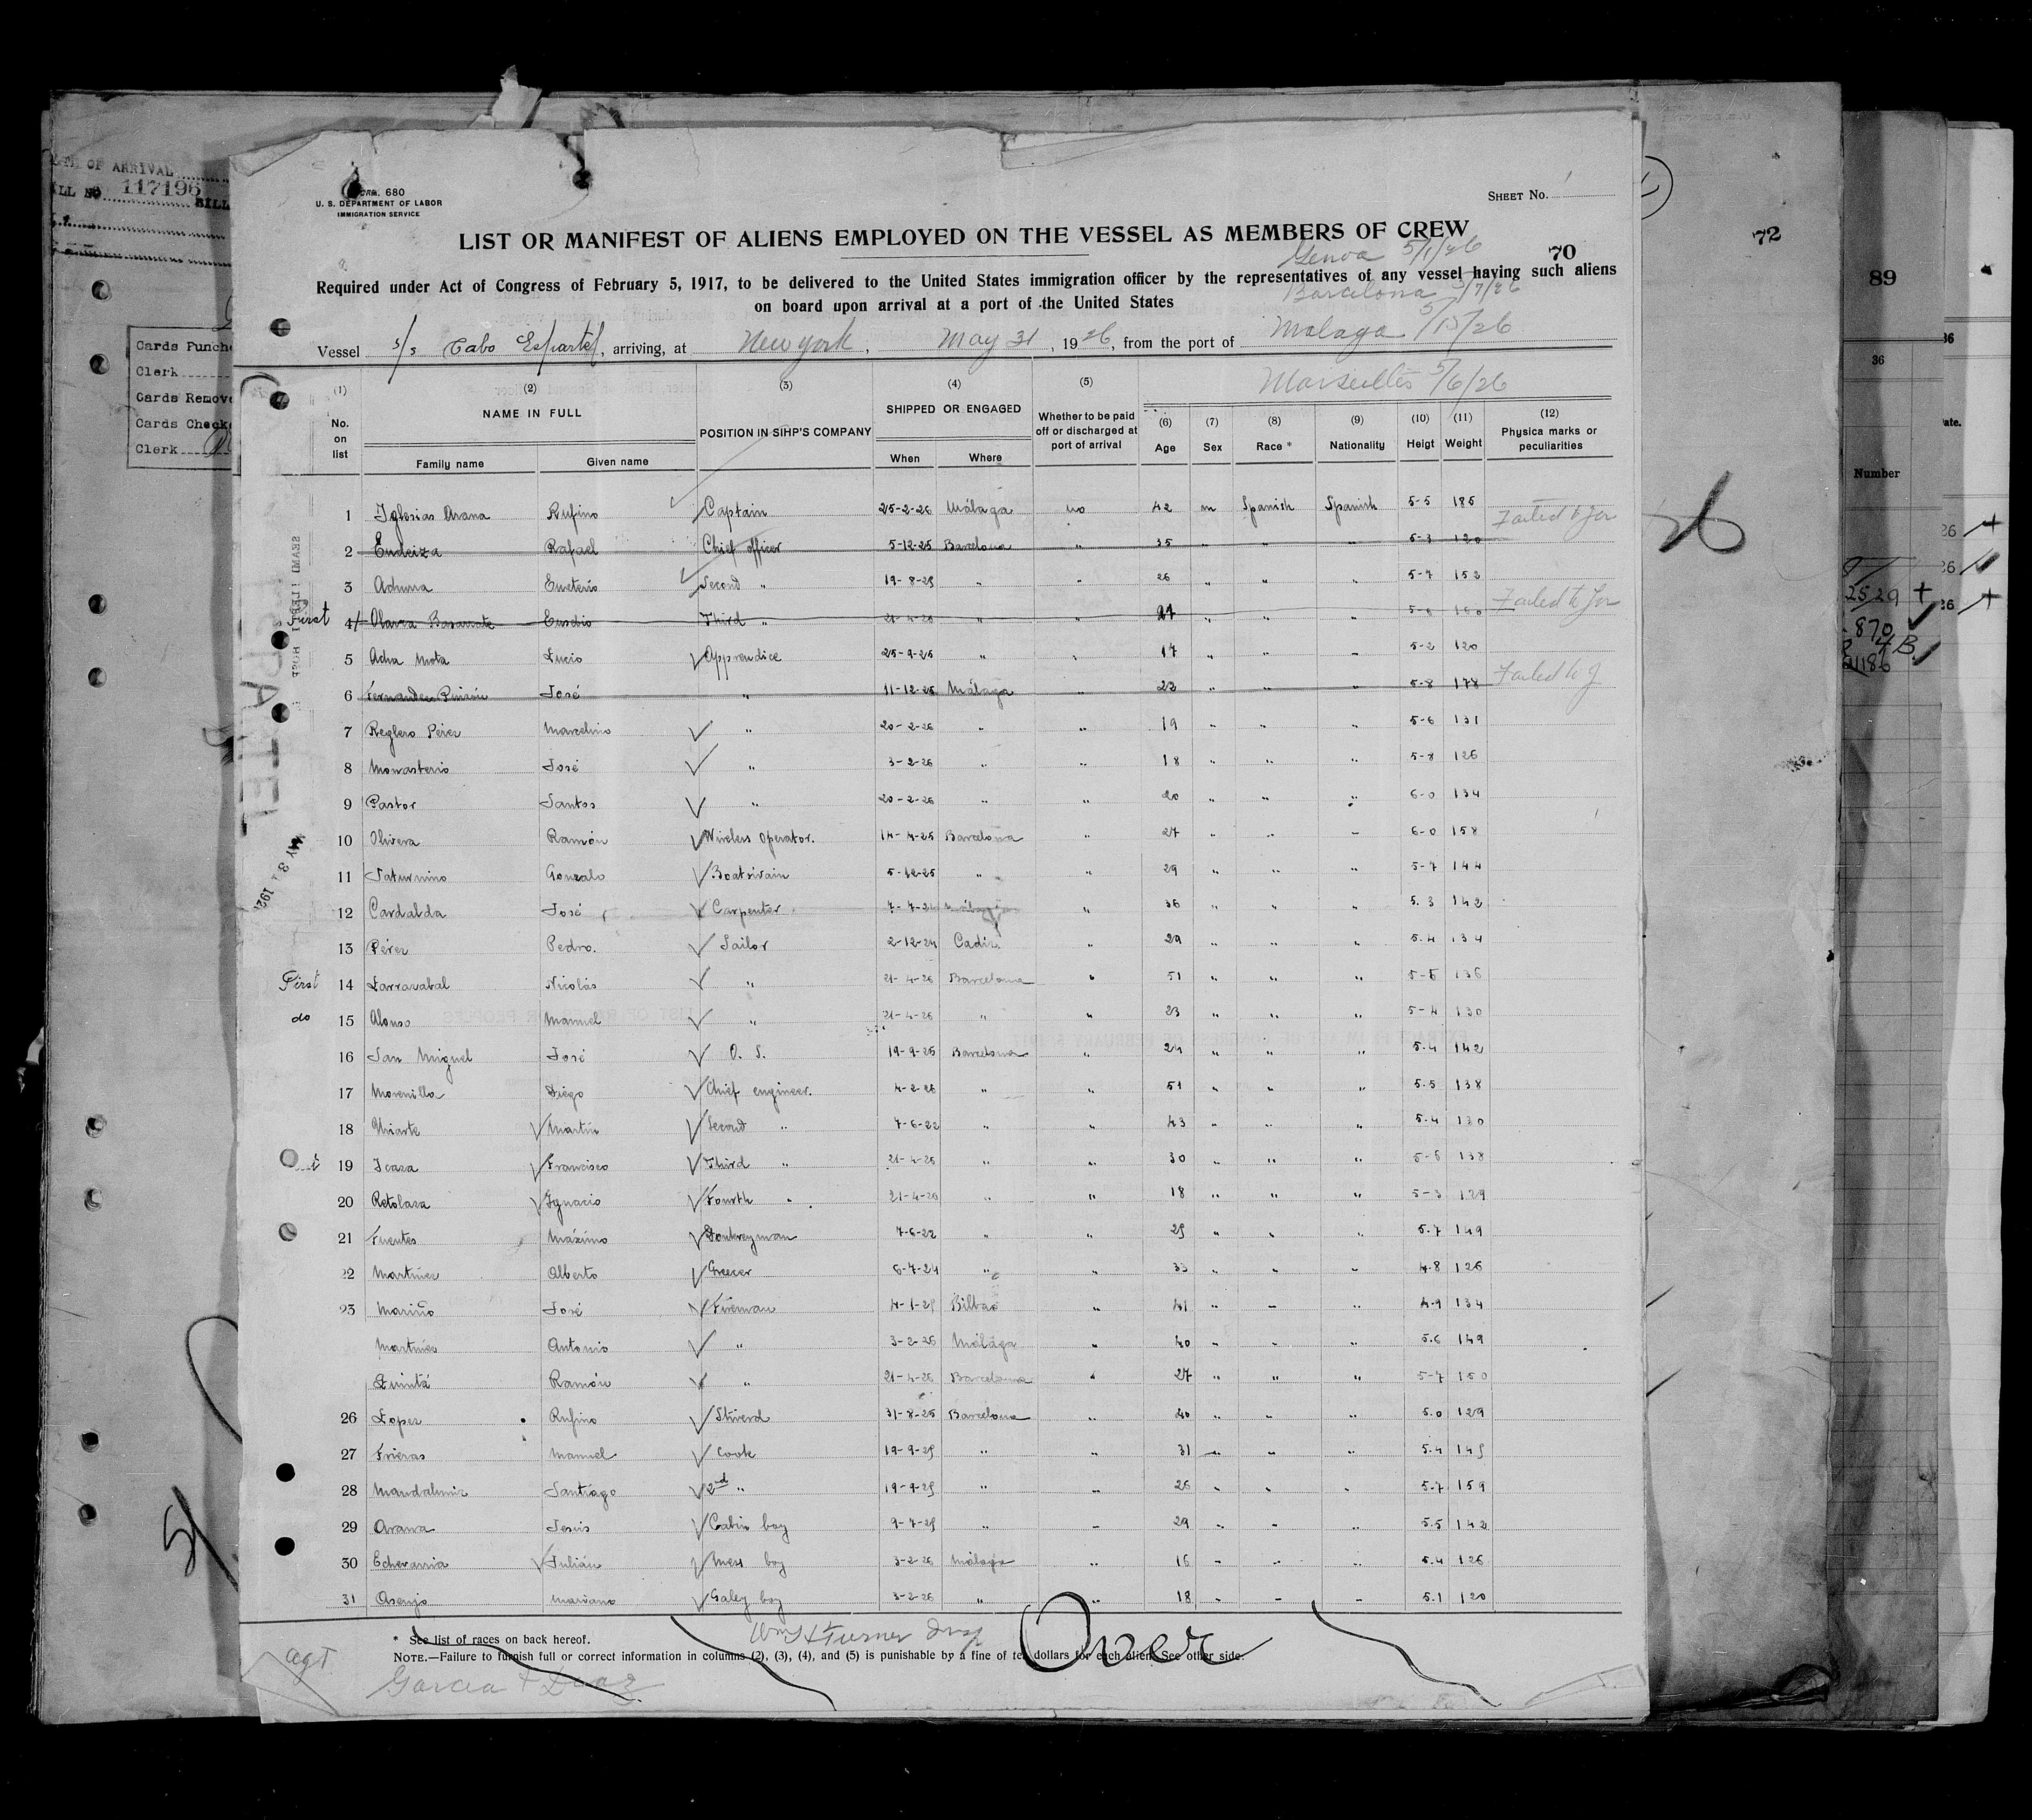 FORM 680
U. S. DEPARTMENT OF LABOR
IMMIGRATION SERVICE
SHEET No. 1
LIST OR MANIFEST OF ALIENS EMPLOYED ON THE VESSEL AS MEMBERS OF CREW
Genoa 5/1/26
70
Required under Act of Congress of February 5, 1917, to be delivered to the United States immigration officer by the representatives of any vessel having such aliens
on board upon arrival at a port of the United States
Barcelona 5/7/26
Vessel s/s Cabo Espartel, arriving, at New york, May 31, 1926, from the port of Malaga 5/15/26
Marseilles 5/6/26
(1) (2) (3) (4) (5) (6) (7) (8) (9) (10) (11) (12)
No. on list NAME IN FULL POSITION IN SIHP'S COMPANY SHIPPED OR ENGAGED Whether to be paid off or discharged at port of arrival Age Sex Race * Nationality Heigt Weight Physica marks or peculiarities
Family name Given name When Where
1 Iglesias Arana Rufino Captain 25-2-26 Málaga no 42 m Spanish Spanish 5-5 185
2 Endeiza Rafael Chief officer 5-12-25 Barcelona " 35 " " " 5-3 120 Failed to Join
3 Achurra Emeterio Second " 19-8-25 " " 26 " " " 5-7 153
First 4 Olavea Basarrate Eusebio Third " 21-4-26 " " 27 " " " 5-6 160 Failed to Join
5 Acha Mota Lucio Apprendice 25-9-25 " " 17 " " " 5-2 120
6 Fernandez José " 11-12-25 Málaga " 23 " " " 5-8 178 Failed to J
7 Reglero Pérez Marcelino " 20-2-26 " " 19 " " " 5-6 131
8 Monasterio José " 3-2-26 " " 18 " " " 5-8 126
9 Pastor Santos " 20-2-26 " " 20 " " " 6-0 134
10 Olivera Ramón Wireless operator. 14-4-25 Barcelona " 27 " " " 6-0 158
11 Saturnino Gonzalo Boatswain 5-12-25 " " 29 " " " 5-7 144
12 Cardalda José Carpenter 7-7-21 Málaga " 36 " " " 5.3 142
13 Pérez Pedro. Sailor 2-12-24 Cadiz " 29 " " " 5.4 134
First 14 Larravabal Nicolás " 21-4-26 Barcelona " 51 " " " 5-5 136
do 15 Alonso Manuel " 21-4-26 " " 23 " " " 5-4 130
16 San Miguel José O. S. 19-9-25 Barcelona " 24 " " " 5.4 142
17 Morenilla Diego Chief engineer. 4-2-26 " " 51 " " " 5.5 138
18 Uriarte Martín Second " 7-6-22 " " 43 " " " 5.4 130
19 Icaza Francisco Third " 21-4-26 " " 30 " " " 5-6 138
20 Retolaza Ignacio Fourth " 21-4-26 " " 18 " " " 5-3 129
21 Fuentes Máximo Donkeyman 7-6-22 " " 25 " " " 5.7 149
22 Martínez Alberto Greecer 6-7-24 " " 33 " " " 4-8 126
23 Mariño José Fireman 4-1-25 Bilbao " 41 " " " 4-9 134
Martínez Antonio " 3-2-26 Málaga " 40 " " " 5.6 149
Quintá Ramón " 21-4-26 Barcelona " 27 " " " 5-7 150
26 Lopez Rufino Stiverd 31-8-25 Barcelona " 40 " " " 5.0 129
27 Frieras Manuel Cook 19-9-25 " " 31 " " " 5.4 145
28 Mandaluniz Santiago 2nd " 19-9-25 " " 26 " " " 5.7 159
29 Arana Jesús Cabin boy 9-7-25 " " 29 " " " 5.5 142
30 Echevarria Julián Mess boy 3-2-26 Málaga " 16 " " " 5.4 126
31 Asenjo Mariano Galey boy 3-2-26 " " 18 " " " 5.1 120
* See list of races on back hereof.
Wm H Turner Insp
Over
NOTE.—Failure to furnish full or correct information in columns (2), (3), (4), and (5) is punishable by a fine of ten dollars for each alien. See other side.
agt
Garcia & Diaz
OF ARRIVAL
117196
BILL
Cards Punche
Clerk
Cards Remove
Cards Check
Clerk
MAY 31 192
72
89
36
Number
ate.
26
2529
870
4B
1186